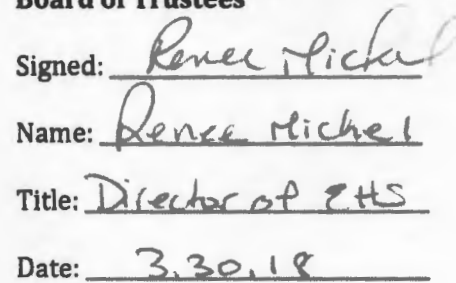 Board of Trustees
Signed: Renee Mickel
Name: Renee Mickel
Title: Director of EHS
Date: 3.30.18